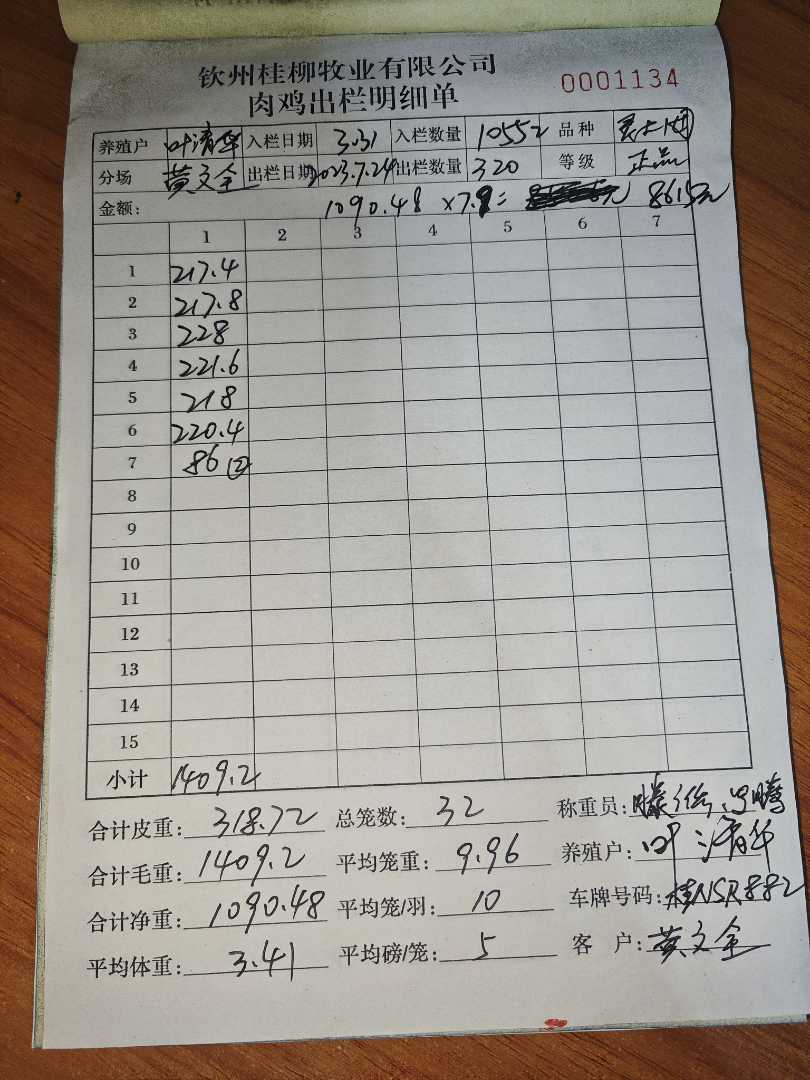 钦州桂柳牧业有限公司
0001134
肉鸡出栏明细单
养殖户 叶清华 入栏日期 3.31 入栏数量 10552 品种
分场 黄文全 出栏日期 2023.7.24 出栏数量 320 等级 正品
金额: 1090.48 ×7.9= 元 8615元
1 2 3 4 5 6 7
1 217.4
2 217.8
3 228
4 221.6
5 218
6 220.4
7 86 ②
8
9
10
11
12
13
14
15
小计 1409.2
合计皮重: 318.72 总笼数: 32 称重员:
合计毛重: 1409.2 平均笼重: 9.96 养殖户: 叶清华
合计净重: 1090.48 平均笼/羽: 10 车牌号码: 桂NSR882
平均体重: 3.41 平均磅/笼: 5 客户: 黄文全